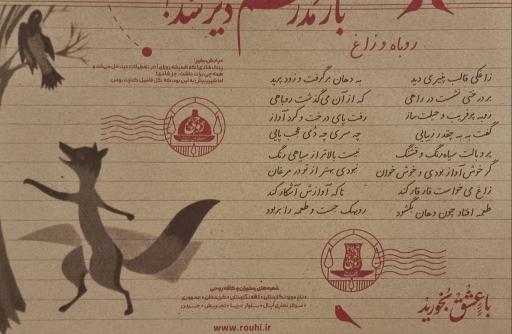 روباه و زاغ
زاغکی قالب پنیری دید
به دهان برگرفت و زود پرید
بر درختی نشست در راهی
که از آن می گذشت روباهی
روبه پرفریب و حیلت ساز
رفت پای درخت و کرد آواز
گفت به به چقدر زیبایی
چه سری چه دُمی عجب پایی
پر و بالت سیاه رنگ و قشنگ
نیست بالاتر از سیاهی رنگ
گر خوش آواز بودی و خوش خوان
بودی بهتر از تو در مرغان
زاغ می خواست قار قار کند
تا که آوازش آشکار کند
طعمه افتاد چون دهان بگشود
روبهک جست و طعمه را بربود
روحی
شعبه‌های رستوران و کافه روحی
باعشق بخورید
www.rouhi.ir